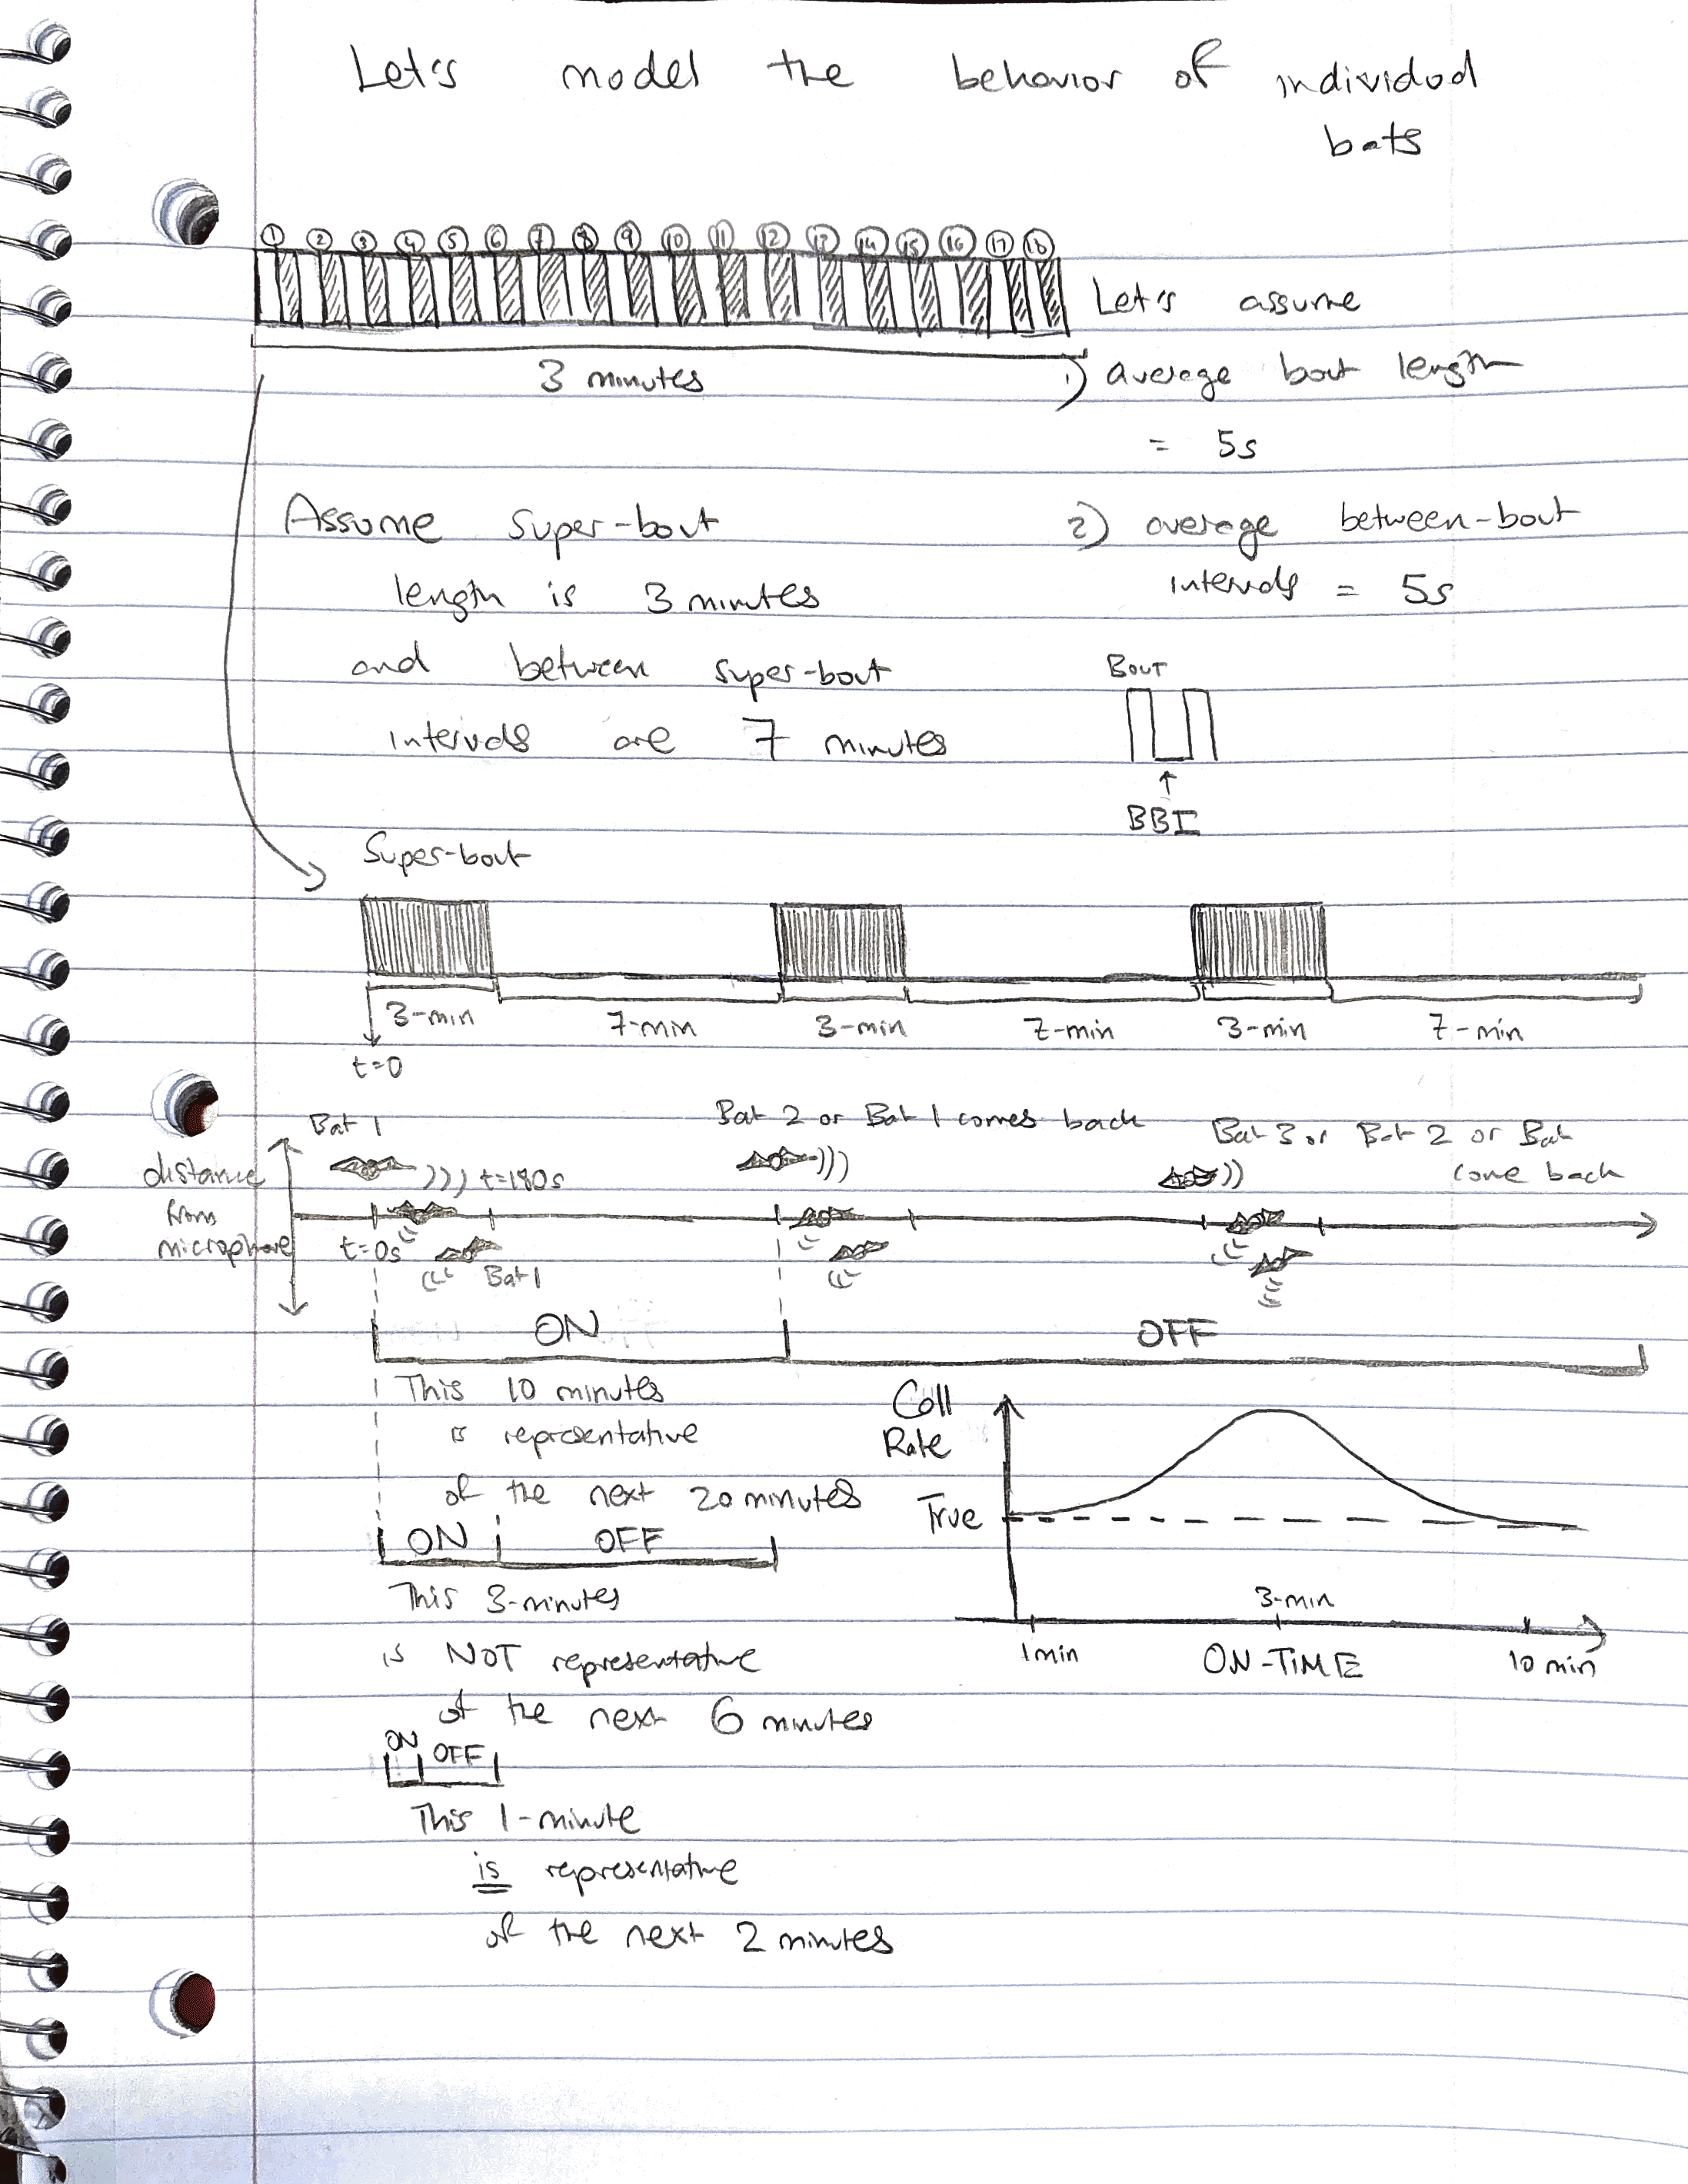 Let's model the behavior of individual
bats
1 2 3 4 5 6 7 8 9 10 11 12 13 14 15 16 17 18
Let's assume
3 minutes
1) average bout length
= 5s
Assume super-bout
length is 3 minutes
and between super-bout
intervals are 7 minutes
2) average between-bout
intervals = 5s
BOUT
BBI
Super-bout
3-min 7-min 3-min 7-min 3-min 7-min
t=0
Bat 1
Bat 2 or Bat 1 comes back
Bat 3 or Bat 2 or Bat
come back
distance
from
microphone
t=180s
t=0s
Bat 1
ON OFF
This 10 minutes
is representative
of the next 20 minutes
ON OFF
This 3-minutes
is NOT representative
of the next 6 minutes
ON OFF
This 1-minute
is representative
of the next 2 minutes
Call
Rate
True
3-min
1min ON-TIME 10 min